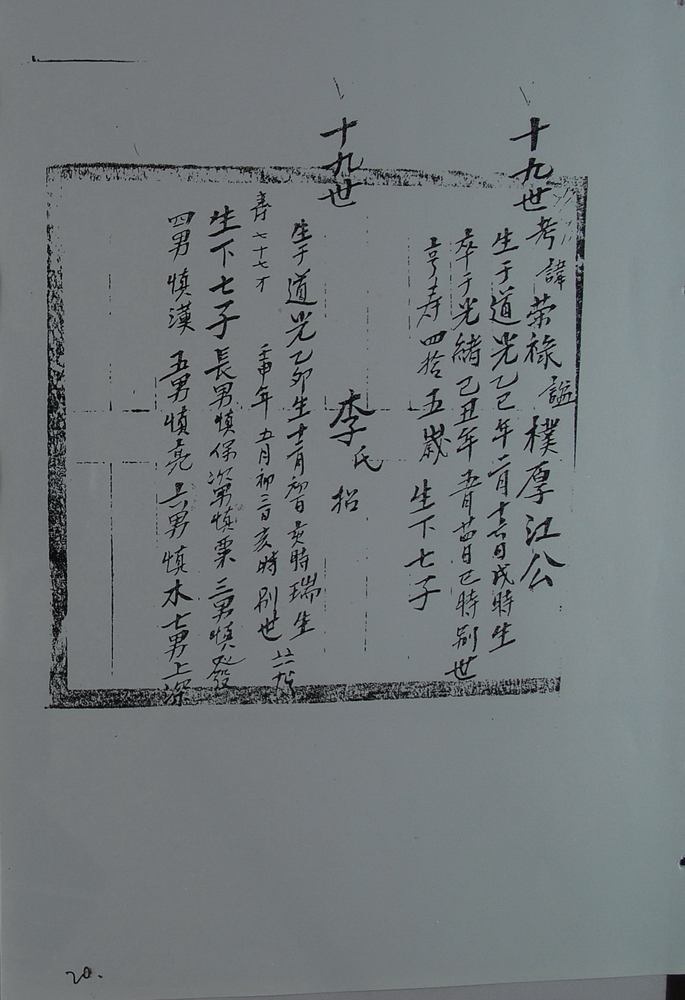 十九世考諱荣祿謚樸厚江公
生于道光乙巳年二月十六日戌時生
卒于光緒己丑年五月廿四日巳時别世
享寿四拾五歲 生下七子
十九世
李氏招
生于道光乙卯生十二月初一日亥時瑞生
寿七十七才 壬申年五月初三日亥時别世
生下七子長男慎保次男慎粟三男慎發
四男慎漢五男慎亮六男慎木七男上深
20.